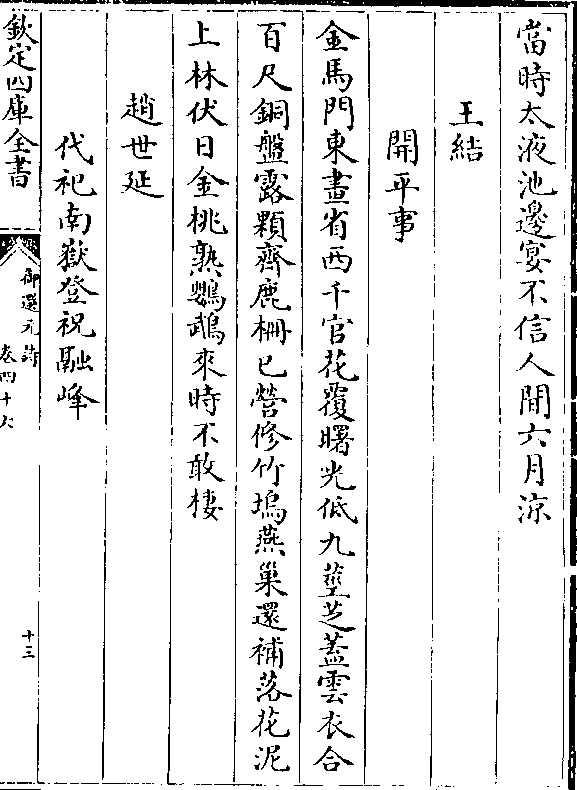 當時太液池邊宴不信人間六月涼
王結
開平事
金馬門東畫省西千官花覆曙光低九莖芝蓋雲衣合
百尺銅盤露顆齊鹿柵已營修竹塢燕巢還補落花泥
上林伏日金桃熟鸚鵡來時不敢棲
趙世延
代祀南嶽登祝融峰
欽定四庫全書
御選元詩
卷四十六
十三